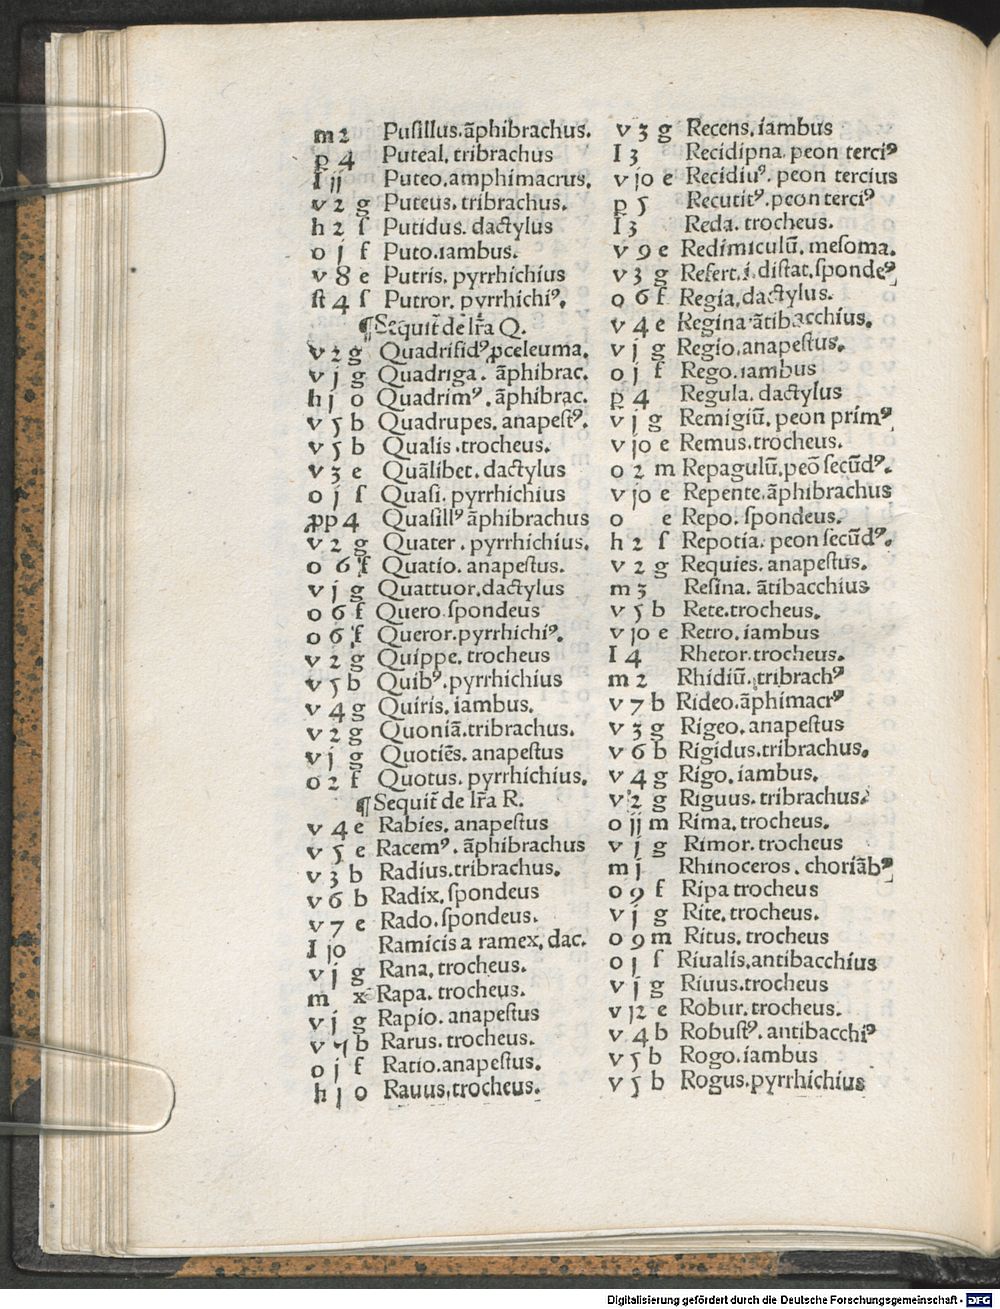 m 2 Puſillus.ãphibrachus.
p 4 Puteal. tribrachus
I jj Puteo.amphimacrus.
v 2 g Puteus. tribrachus.
h 2 ſ Putidus. dactylus
o j f Puto.iambus.
v 8 e Putris. pyrrhichius
ſt 4 ſ Putror. pyrrhichiꝰ.
¶Sequit̃ de lr̃a Q.
v 2 g Quadrifidꝰ.ꝓceleuma.
v j g Quadriga. ãphibrac.
h j o Quadrimꝰ. ãphibrac.
v 5 b Quadrupes. anapeſtꝰ.
v 5 b Qualis.trocheus.
v 3 e Quãlibet. dactylus
o j ſ Quaſi. pyrrhichius
ꝓp 4 Quaſillꝰ ãphibrachus
v 2 g Quater. pyrrhichius.
o 6 f Quatio. anapeſtus.
v j g Quattuor.dactylus
o 6 f Quero.ſpondeus
o 6 f Queror.pyrrhichiꝰ.
v 2 g Quippe. trocheus
v 5 b Quibꝰ.pyrrhichius
v 4 g Quiris. iambus.
v 2 g Quoniã.tribrachus.
v j g Quotiẽs. anapeſtus
o 2 f Quotus. pyrrhichius.
¶Sequit̃ de lr̃a R.
v 4 e Rabies. anapeſtus
v 5 e Racemꝰ. ãphibrachus
v 3 b Radius.tribrachus.
v 6 b Radix. ſpondeus
v 7 e Rado. ſpondeus.
I jo Ramicis a ramex. dac.
v j g Rana. trocheus.
m x Rapa. trocheus.
v j g Rapio. anapeſtus
v 7 b Rarus. trocheus.
o j f Ratio.anapeſtus.
h j o Rauus.trocheus.
v 3 g Recens. iambus
I 3 Recidipna. peon terciꝰ
v jo e Recidiuꝰ. peon tercius
p 5 Recutitꝰ. peon terciꝰ
I 3 Reda. trocheus.
v 9 e Redimiculũ. meſoma.
v 3 g Refert. i. diſtat. ſpondeꝰ
o 6 f Regia. dactylus.
v 4 e Regina ãtibacchius.
v j g Regio.anapeſtus.
o j f Rego. iambus
p 4 Regula. dactylus
v j g Remigiũ. peon primꝰ
v jo e Remus.trocheus.
o 2 m Repagulũ. peõ ſecũdꝰ.
v jo e Repente.ãphibrachus
o e Repo. ſpondeus.
h 2 ſ Repotia. peon ſecũdꝰ.
v 2 g Requies. anapeſtus.
m 3 Reſina. ãtibacchius
v 5 b Rete.trocheus.
v jo e Retro. iambus
I 4 Rhetor.trocheus.
m 2 Rhidiũ. tribrachꝰ
v 7 b Rideo.ãphimacrꝰ
v 3 g Rigeo. anapeſtus
v 6 b Rigidus.tribrachus.
v 4 g Rigo. iambus.
v 2 g Riguus. tribrachus.
o jj m Rima. trocheus.
v j g Rimor. trocheus
m j Rhinoceros. choriãbꝰ
o 9 f Ripa trocheus
v j g Rite. trocheus.
o 9 m Ritus. trocheus
o j ſ Riualis.antibacchius
v j g Riuus.trocheus
v j2 e Robur. trocheus.
v 4 b Robuſtꝰ. antibacchiꝰ
v 5 b Rogo. iambus
v 5 b Rogus.pyrrhichius
Digitalisierung gefördert durch die Deutsche Forschungsgemeinschaft - DFG